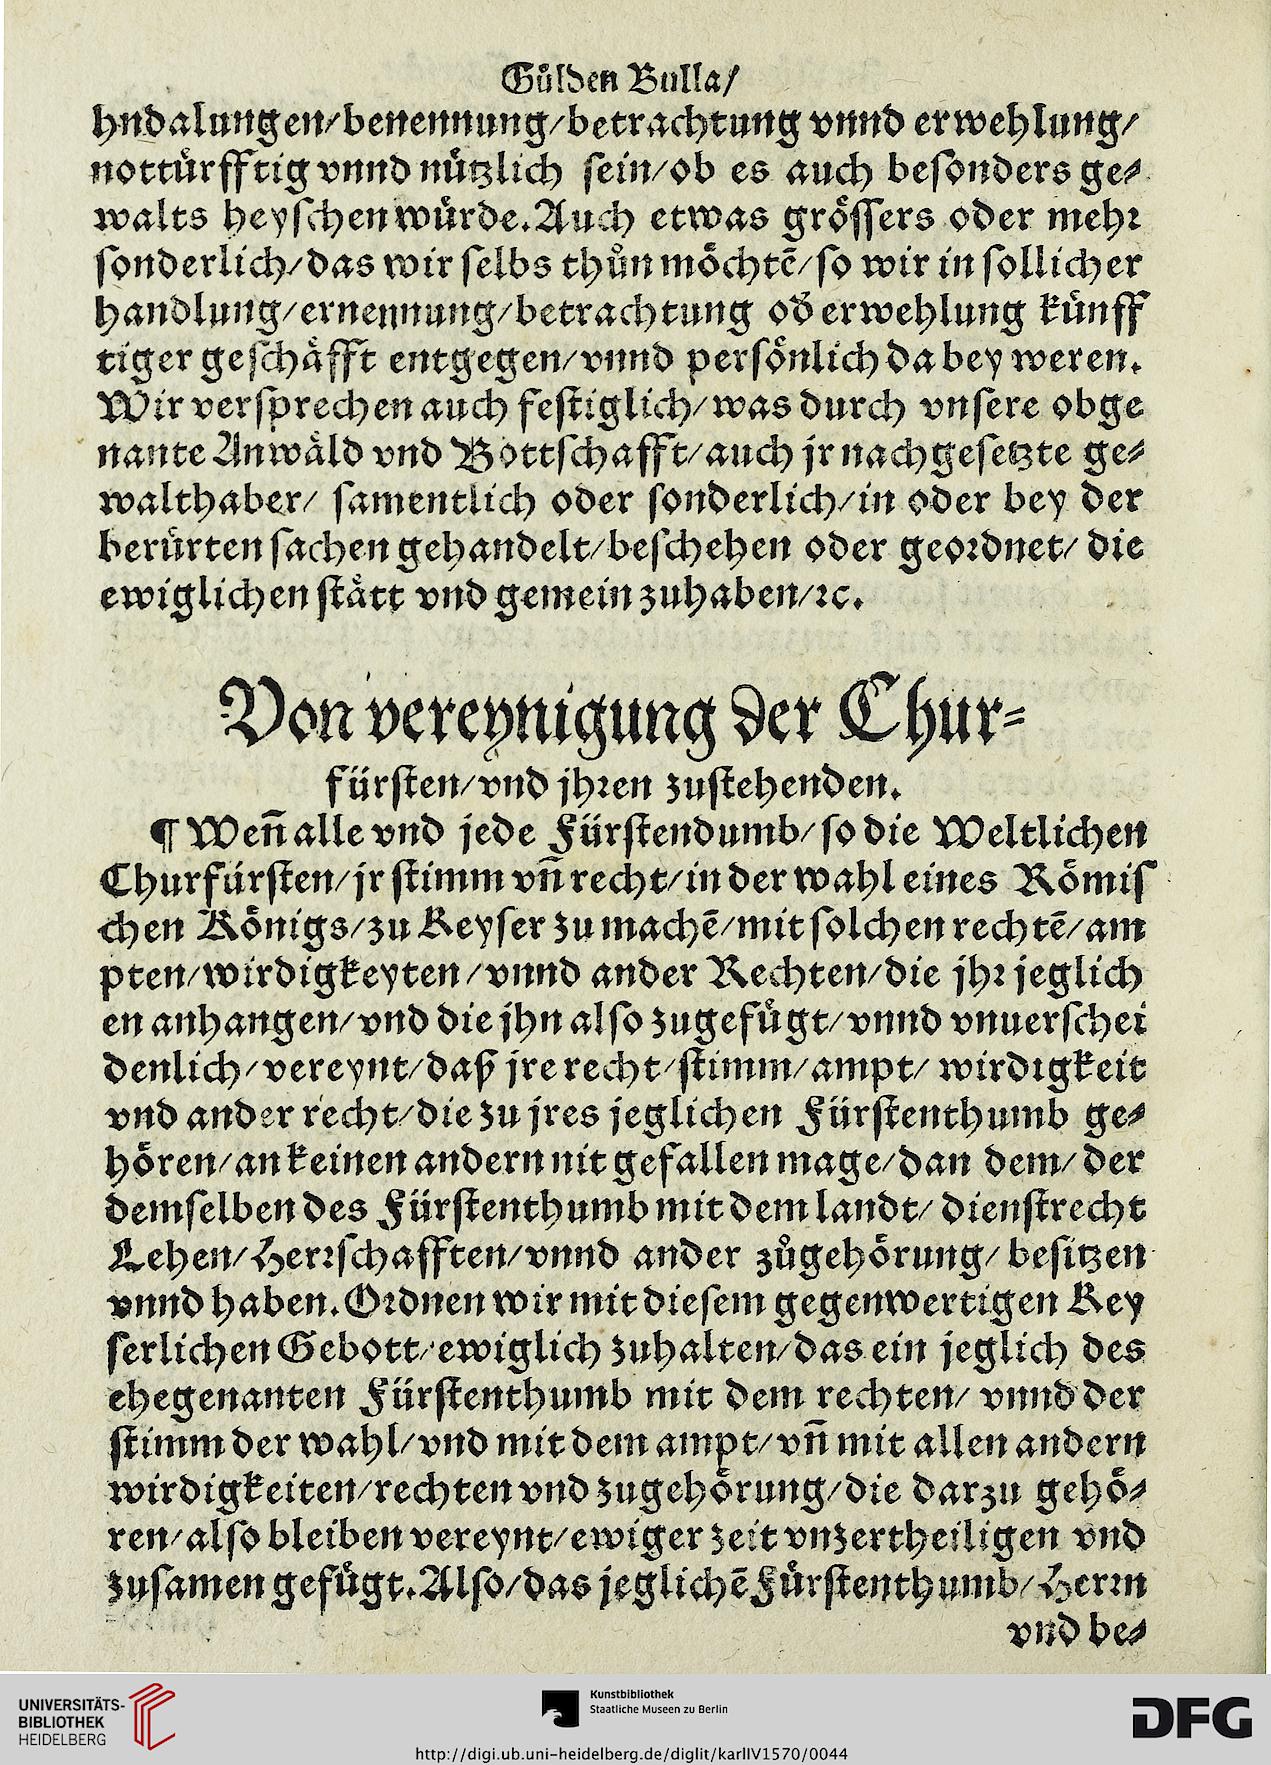 Gülden Bulla/
hndalungen/benennung/betrachtung vnnd erwehlung/
nottürfftig vnnd nützlich sein/ob es auch besonders ge-
walts heyschen würde. Auch etwas grössers oder mehr
sonderlich/das wir selbs thůn möchtẽ/so wir in sollicher
handlung/ernennung/betrachtung oď erwehlung künff
tiger geschäfft entgegen/vnnd persönlich da bey weren.
Wir versprechen auch festiglich/was durch vnsere obge
nante Anwäld vnd Bottschafft/auch jr nachgesetzte ge-
walthaber/ samentlich oder sonderlich/in oder bey der
berürten sachen gehandelt/beschehen oder geordnet/ die
ewiglichen stätt vnd gemein zuhaben/ꝛc.
Von vereynigung der Chur-
fürsten/vnd jhren zustehenden.
¶ Weñ alle vnd jede Fürstendumb/so die Weltlichen
Churfürsten/jr stimm vñ recht/in der wahl eines Römis
chen Königs/zu Keyser zu machẽ/mit solchen rechtẽ/am
pten/wirdigkeyten/vnnd ander Rechten/die jhr jeglich
en anhangen/vnd die jhn also zugefügt/vnnd vnuerschei
denlich/vereynt/daß jre recht/stimm/ampt/ wirdigkeit
vnd ander recht/die zu jres jeglichen Fürstenthumb ge-
hören/an keinen andern nit gefallen mage/dan dem/ der
demselben des Fürstenthumb mit dem landt/ dienstrecht
Lehen/Herrschafften/vnnd ander zůgehörung/ besitzen
vnnd haben. Ordnen wir mit diesem gegenwertigen Key
serlichen Gebott/ewiglich zuhalten/das ein jeglich des
ehegenanten Fürstenthumb mit dem rechten/ vnnd der
stimm der wahl/vnd mit dem ampt/vñ mit allen andern
wirdigkeiten/rechten vnd zugehörung/die darzu gehö-
ren/also bleiben vereynt/ewiger zeit vnzertheiligen vnd
zusamen gefügt. Also/das jeglichẽ Fürstenthumb/Herrn
vnd be-
UNIVERSITÄTS-
BIBLIOTHEK
HEIDELBERG
Kunstbibliothek
Staatliche Museen zu Berlin
http://digi.ub.uni-heidelberg.de/diglit/karlIV1570/0044
DFG